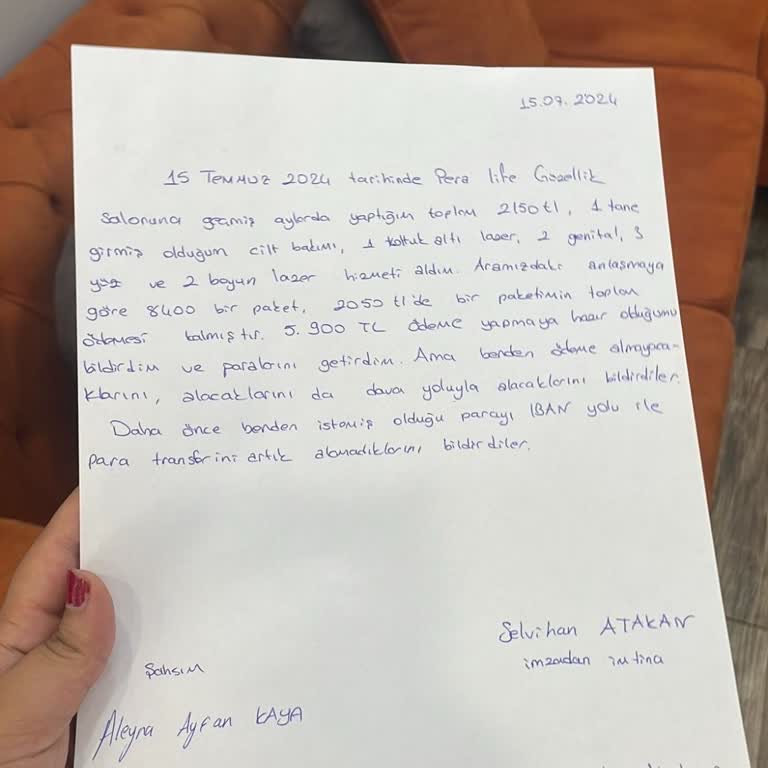 15.07.2024
15 TEMMUZ 2024 tarihinde Pera life Güzellik
Salonuna geçmiş aylarda yaptığım toplam 2150 tl, 1 tane
girmiş olduğum cilt bakımı, 1 koltuk altı lazer, 2 genital, 3
yüz ve 2 boyun lazer hizmeti aldım. Aramızdaki anlaşmaya
göre 8400 bir paket, 2050 tl'de bir paketimin toplam
ödemesi kalmıştır. 5.900 TL ödeme yapmaya hazır olduğumu
bildirdim ve paralarını getirdim. Ama benden ödeme almayaca-
klarını, alacaklarını da dava yoluyla alacaklarını bildirdiler.
Daha önce benden istemiş olduğu parayı IBAN yolu ile
para transferini artık almadıklarını bildirdiler.
Selvihan ATAKAN
imzadan imtina
Şahsım
Aleyna Ayfan KAYA